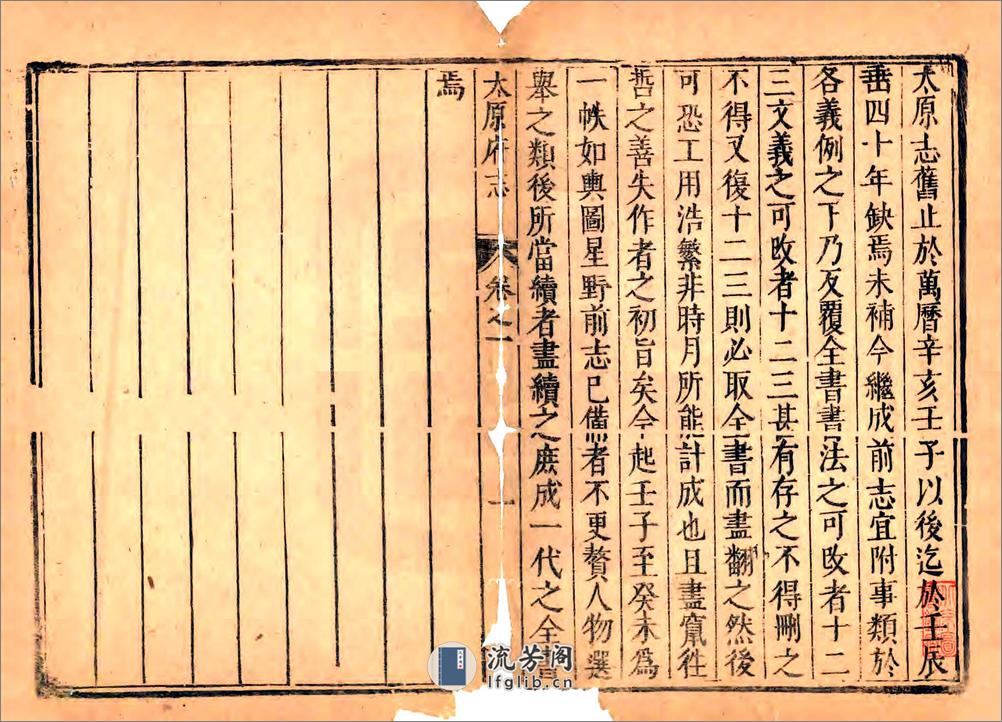 太原志舊止於萬曆辛亥壬子以後迄於壬辰
垂四十年缺焉未補今繼成前志宜附事類於
各義例之下乃反覆全書書法之可改者十二
三文義之可改者十二三甚有存之不得刪之
不得又復十二三則必取全書而盡翻之然後
可恐工用浩繁非時月所能計成也且盡竄徃
哲之善失作者之初旨矣今起壬子至癸未為
一帙如輿圖星野前志已備者不更贅人物選
舉之類後所當續者盡續之庶成一代之全書
太原府志 卷之一 一
焉
流芳阁
lfglib.cn